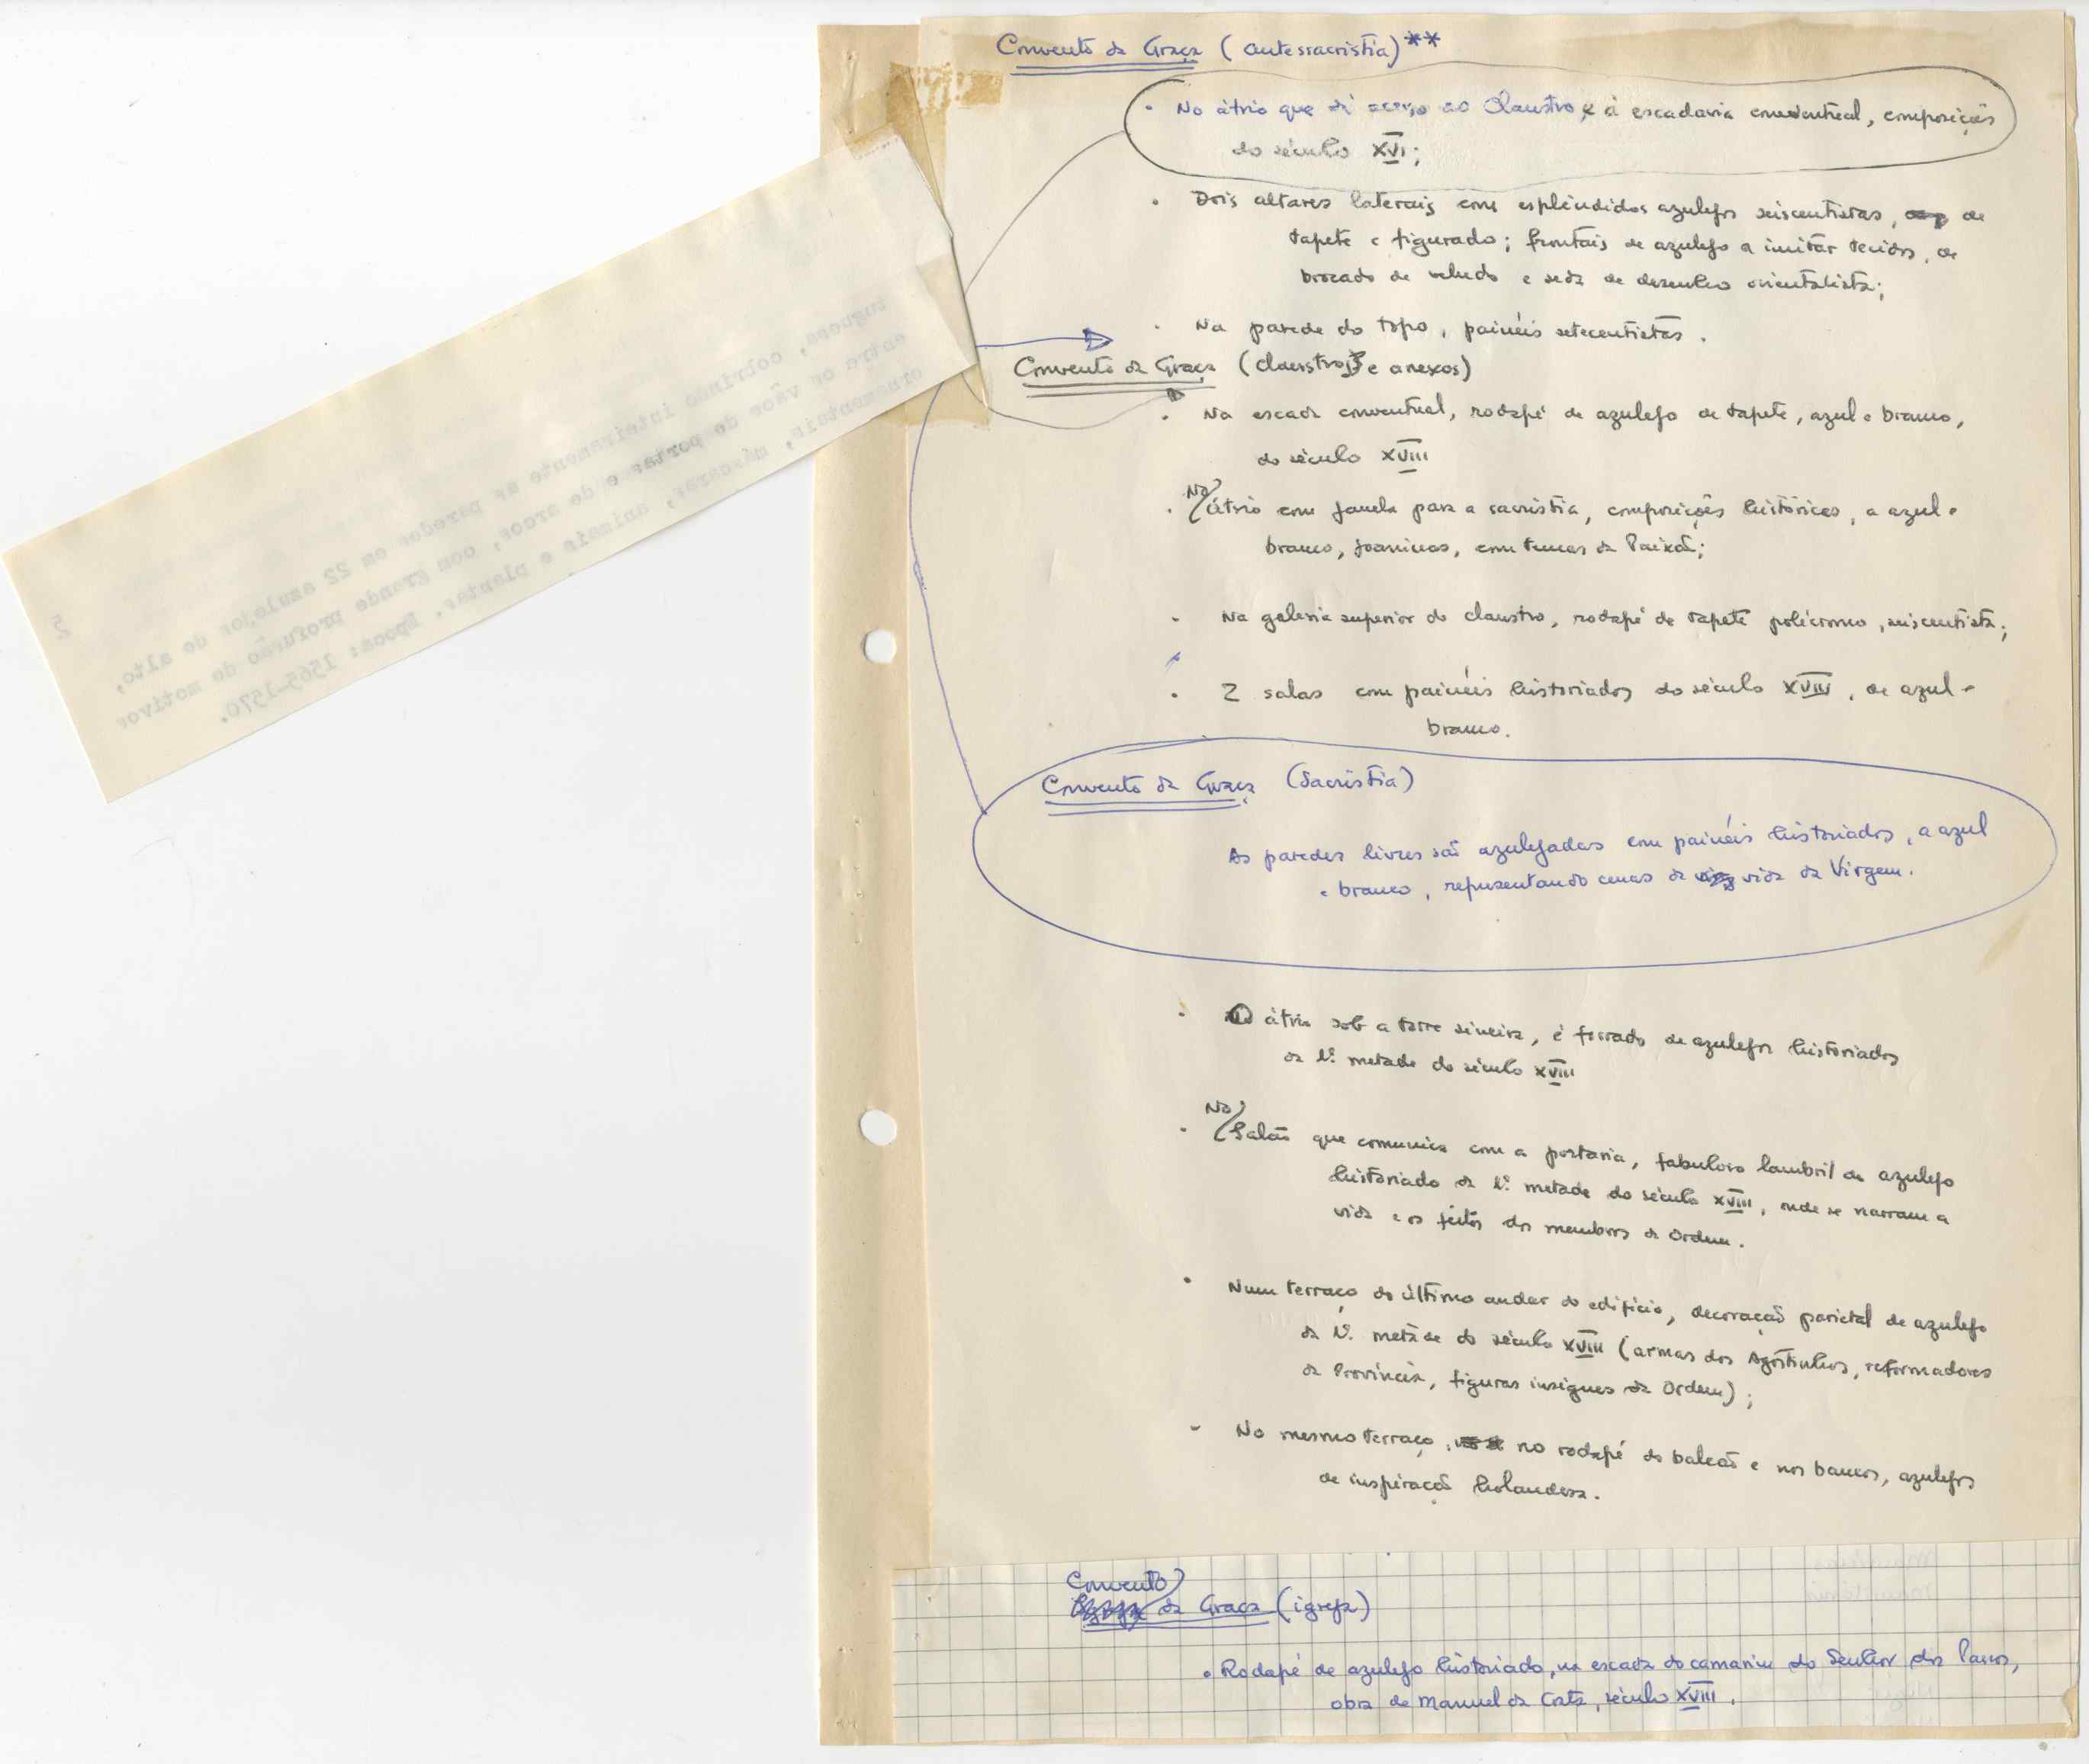 Convento da Graça (antessacristia)**
• No átrio que dá acesso ao Claustro e à escadaria conventual, composições
do século XVI;
• Dois altares laterais com esplêndidos azulejos seiscentistas, de
tapete e figurado; frontais de azulejo a imitar tecidos, de
brocado de veludo e seda de desenho orientalista;
• Na parede do topo, painéis setecentistas.
Convento da Graça (claustro e anexos)
• Na escada conventual, rodapé de azulejo de tapete, azul e branco,
do século XVIII
No
• átrio com janela para a sacristia, composições históricas, a azul e
branco, joaninas, com temas da Paixão;
• Na galeria superior do claustro, rodapé de tapete polícromo, seiscentista;
• 2 salas com painéis historiados do século XVIII, de azul e
branco.
Convento da Graça (Sacristia)
As paredes livres são azulejadas com painéis historiados, a azul
e branco, representando cenas da vida da Virgem.
• O átrio sob a torre sineira, é forrado de azulejos historiados
da 1ª metade do século XVIII
No
• Salão que comunica com a portaria, fabuloso lambril de azulejo
historiado da 1ª metade do século XVIII, onde se narram a
vida e os feitos dos membros da Ordem.
• Num terraço do último andar do edifício, decoração parietal de azulejo
da 1ª metade do século XVIII (armas dos Agostinhos, reformadores
da Província, figuras insignes da Ordem);
- No mesmo terraço, no rodapé do balcão e nos bancos, azulejos
de inspiração holandesa.
Convento
da Graça (igreja)
• Rodapé de azulejo historiado, na escada do camarim do Senhor dos Passos,
obra de Manuel da Costa, século XVIII.
roguesa, cobrindo inteiramente as paredes em 22 azulejos de alto,
entre os vãos de portas e de arcos, com grande profusão de motivos
ornamentais, máscaras, animais e plantas. Época: 1565-1570.
5